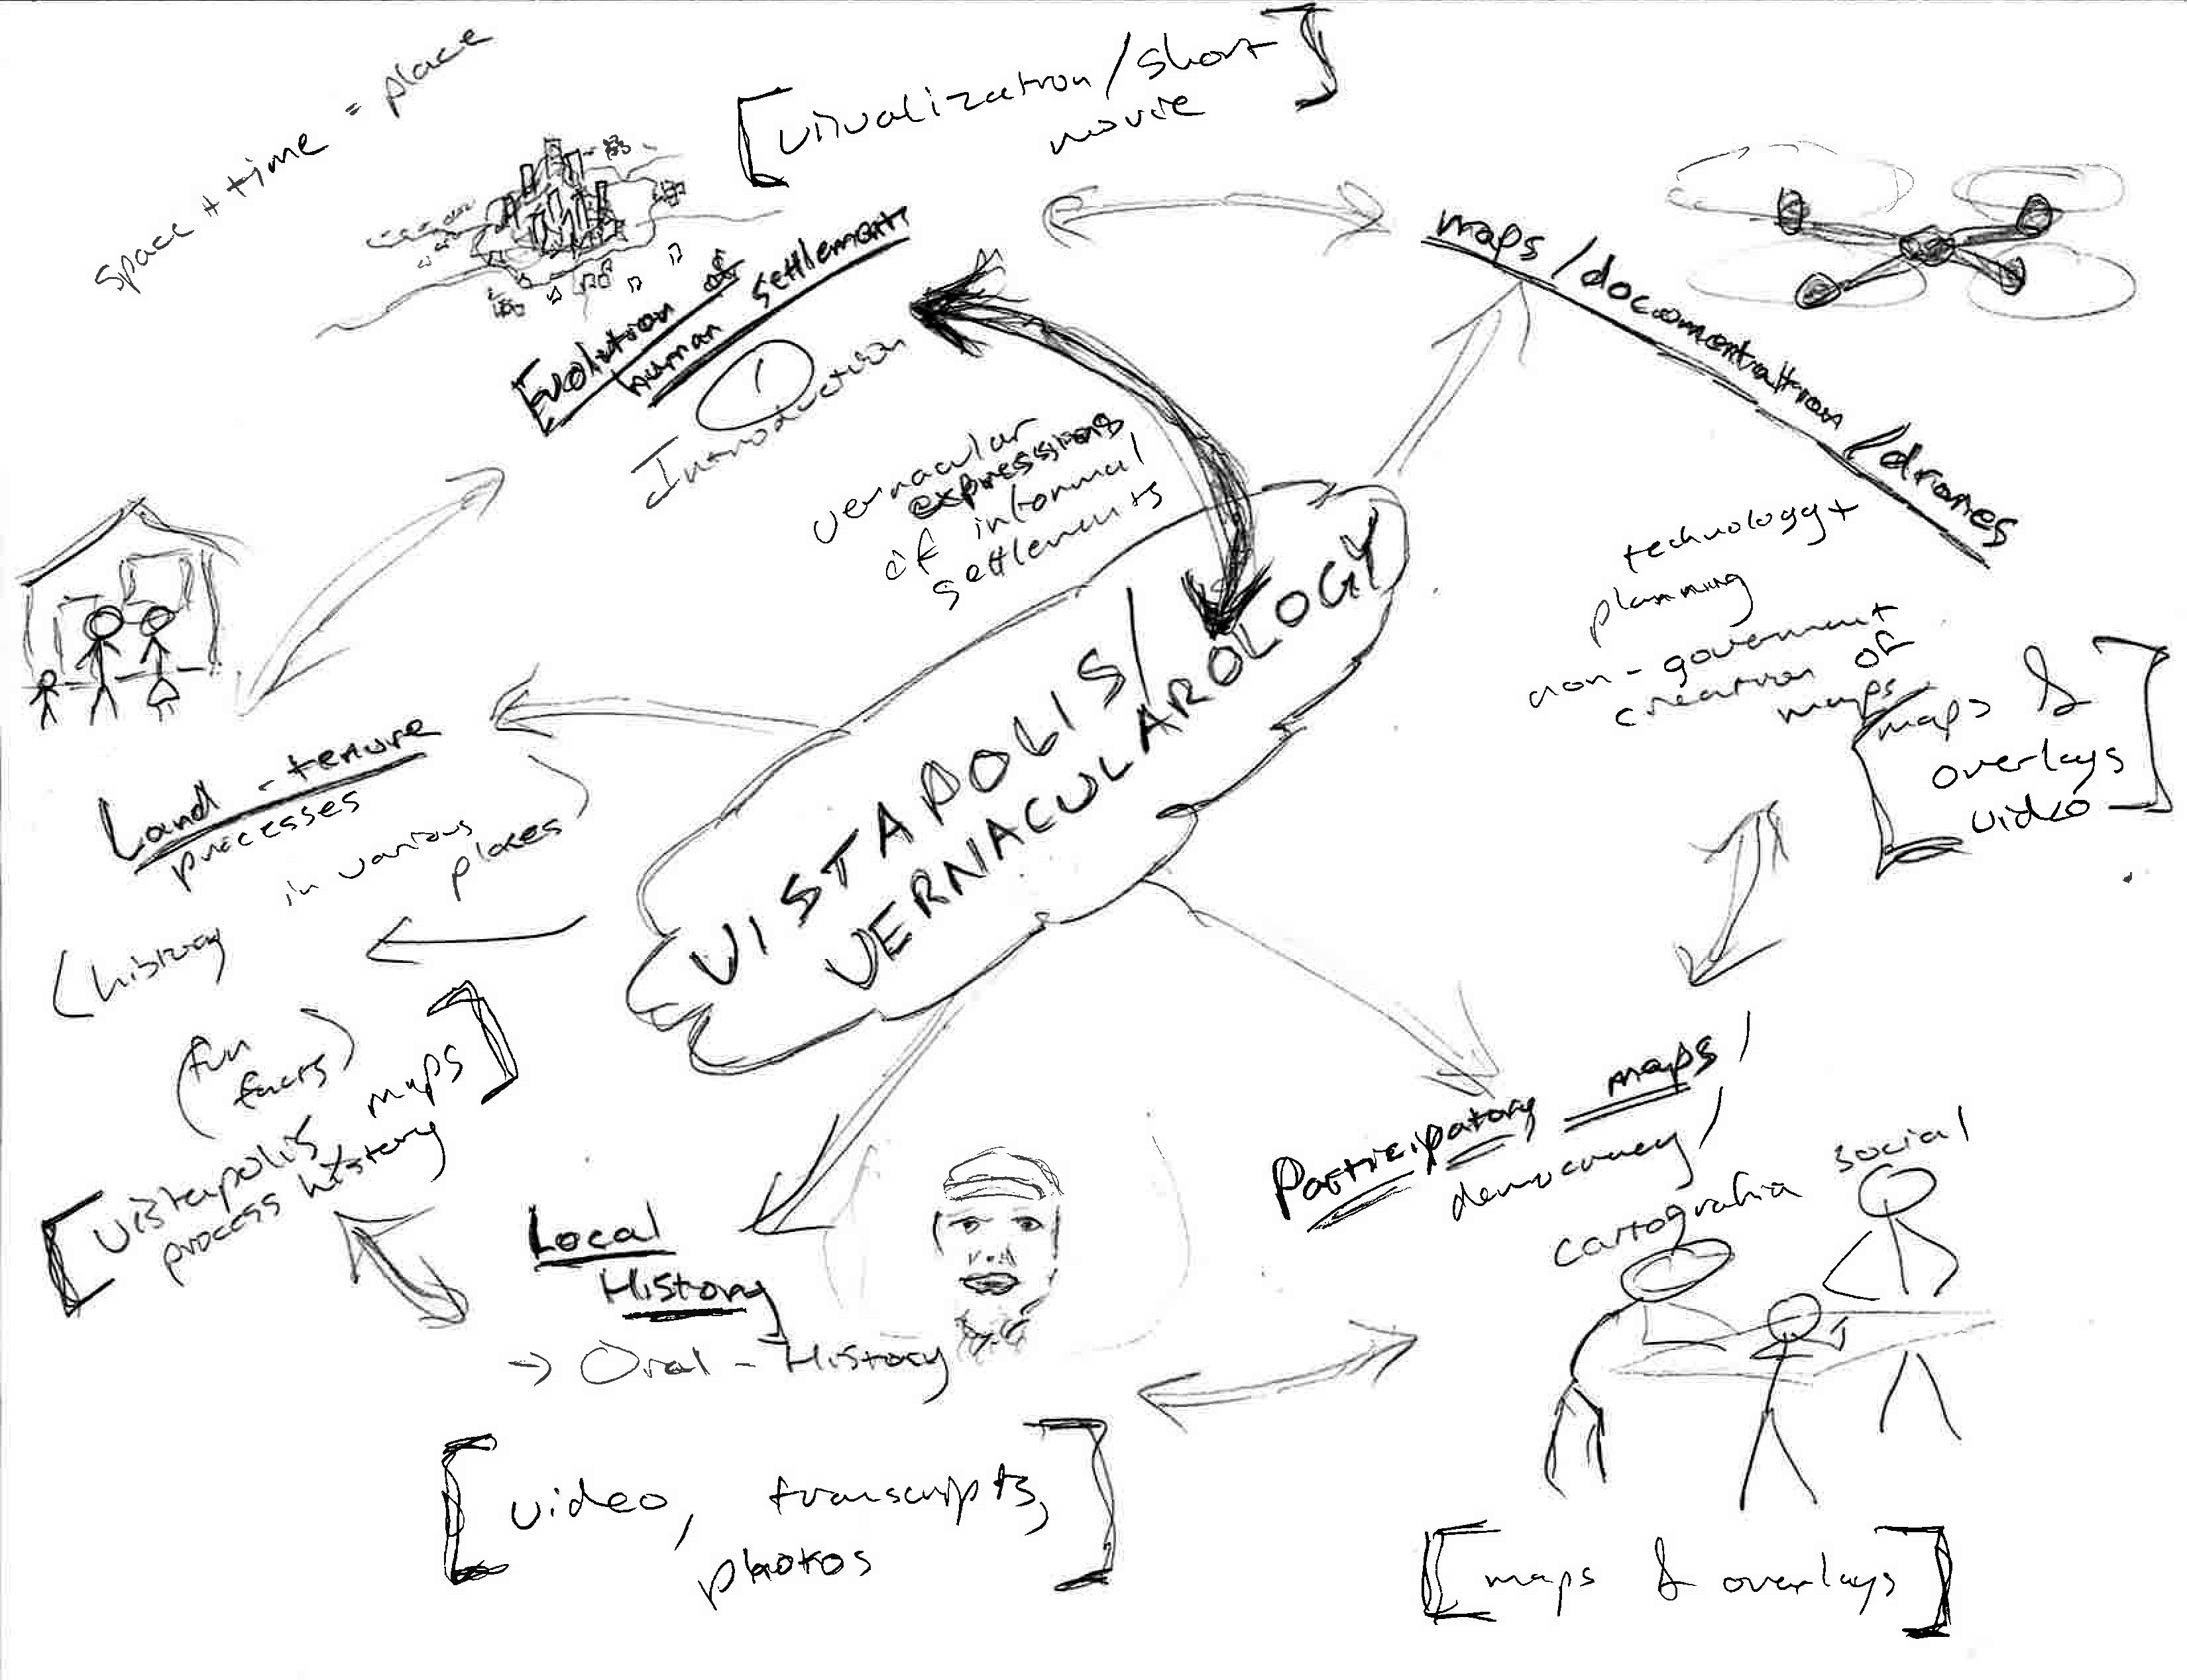 space + time = place
[visualization/short
movie]
Evolution of
human settlements
1
Introduction
vernacular
expressions
of informal
settlements
maps/documentation/drones
technology +
planning
non-government
creation of
maps
[maps &
overlays
video]
VISTAPOLIS/
VERNACULAROLOGY
Land-tenure
processes
in various
places)
(history
(fun
facts)
maps]
[vistapolis
process history
Local
History
→ Oral-History
[video, transcripts,
photos]
Participatory maps/
democracy/
cartografia social
[maps & overlays]